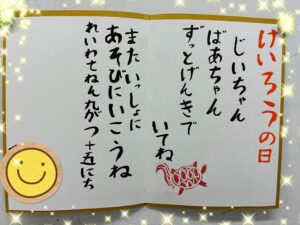 けいろうの日
じいちゃん
ばあちゃん
ずっとげんきで
いてね
またいっしょに
あそびにいこうね
れいわてねん九がつ十五にち